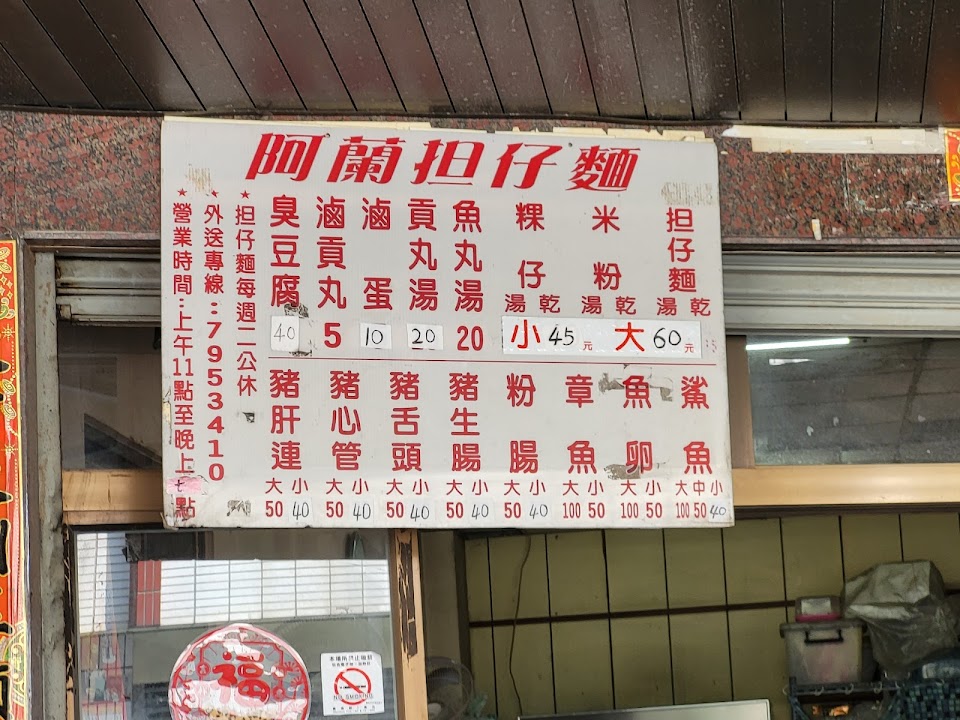 阿蘭担仔麵
担仔麵
湯 乾
米粉
湯 乾
粿仔
湯 乾
小 45元 大 60元
魚丸湯 20
貢丸湯 20
滷蛋 10
滷貢丸 5
臭豆腐 40
鯊魚
大 中 小
100 50 40
魚卵
大 小
100 50
章魚
大 小
100 50
粉腸
大 小
50 40
豬生腸
大 小
50 40
豬舌頭
大 小
50 40
豬心管
大 小
50 40
豬肝連
大 小
50 40
★担仔麵每週二公休
★外送專線:7953410
★營業時間:上午11點至晚上七點
福
NO SMOKING